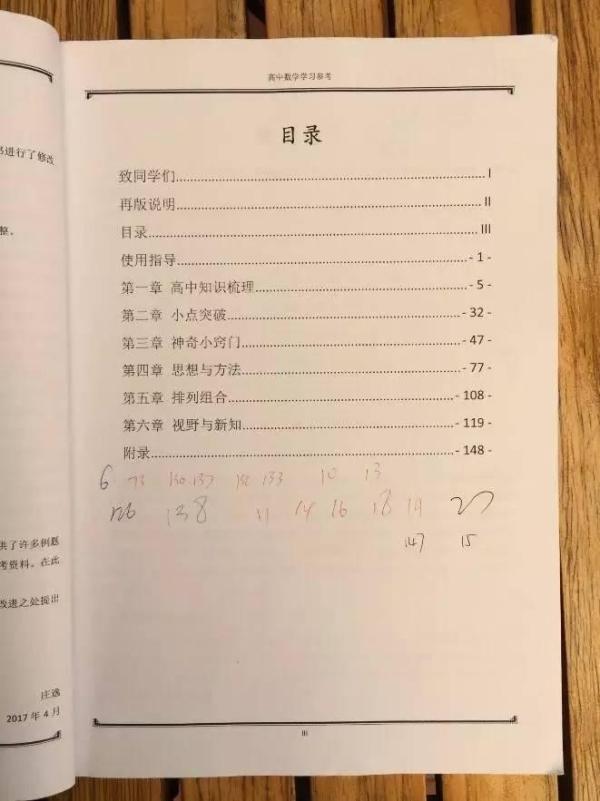 书进行了修改
整。
供了许多例题
考资料。在此
改进之处提出
庄逸
2017 年 4 月
高中数学学习参考
目录
致同学们........................I
再版说明........................II
目录........................III
使用指导........................- 1 -
第一章 高中知识梳理........................- 5 -
第二章 小点突破........................- 32 -
第三章 神奇小窍门........................- 47 -
第四章 思想与方法........................- 77 -
第五章 排列组合........................- 108 -
第六章 视野与新知........................- 119 -
附录........................- 148 -
6 73 130 137 132 133 10 13
126 138 11 14 16 18 19 27
147 15
III